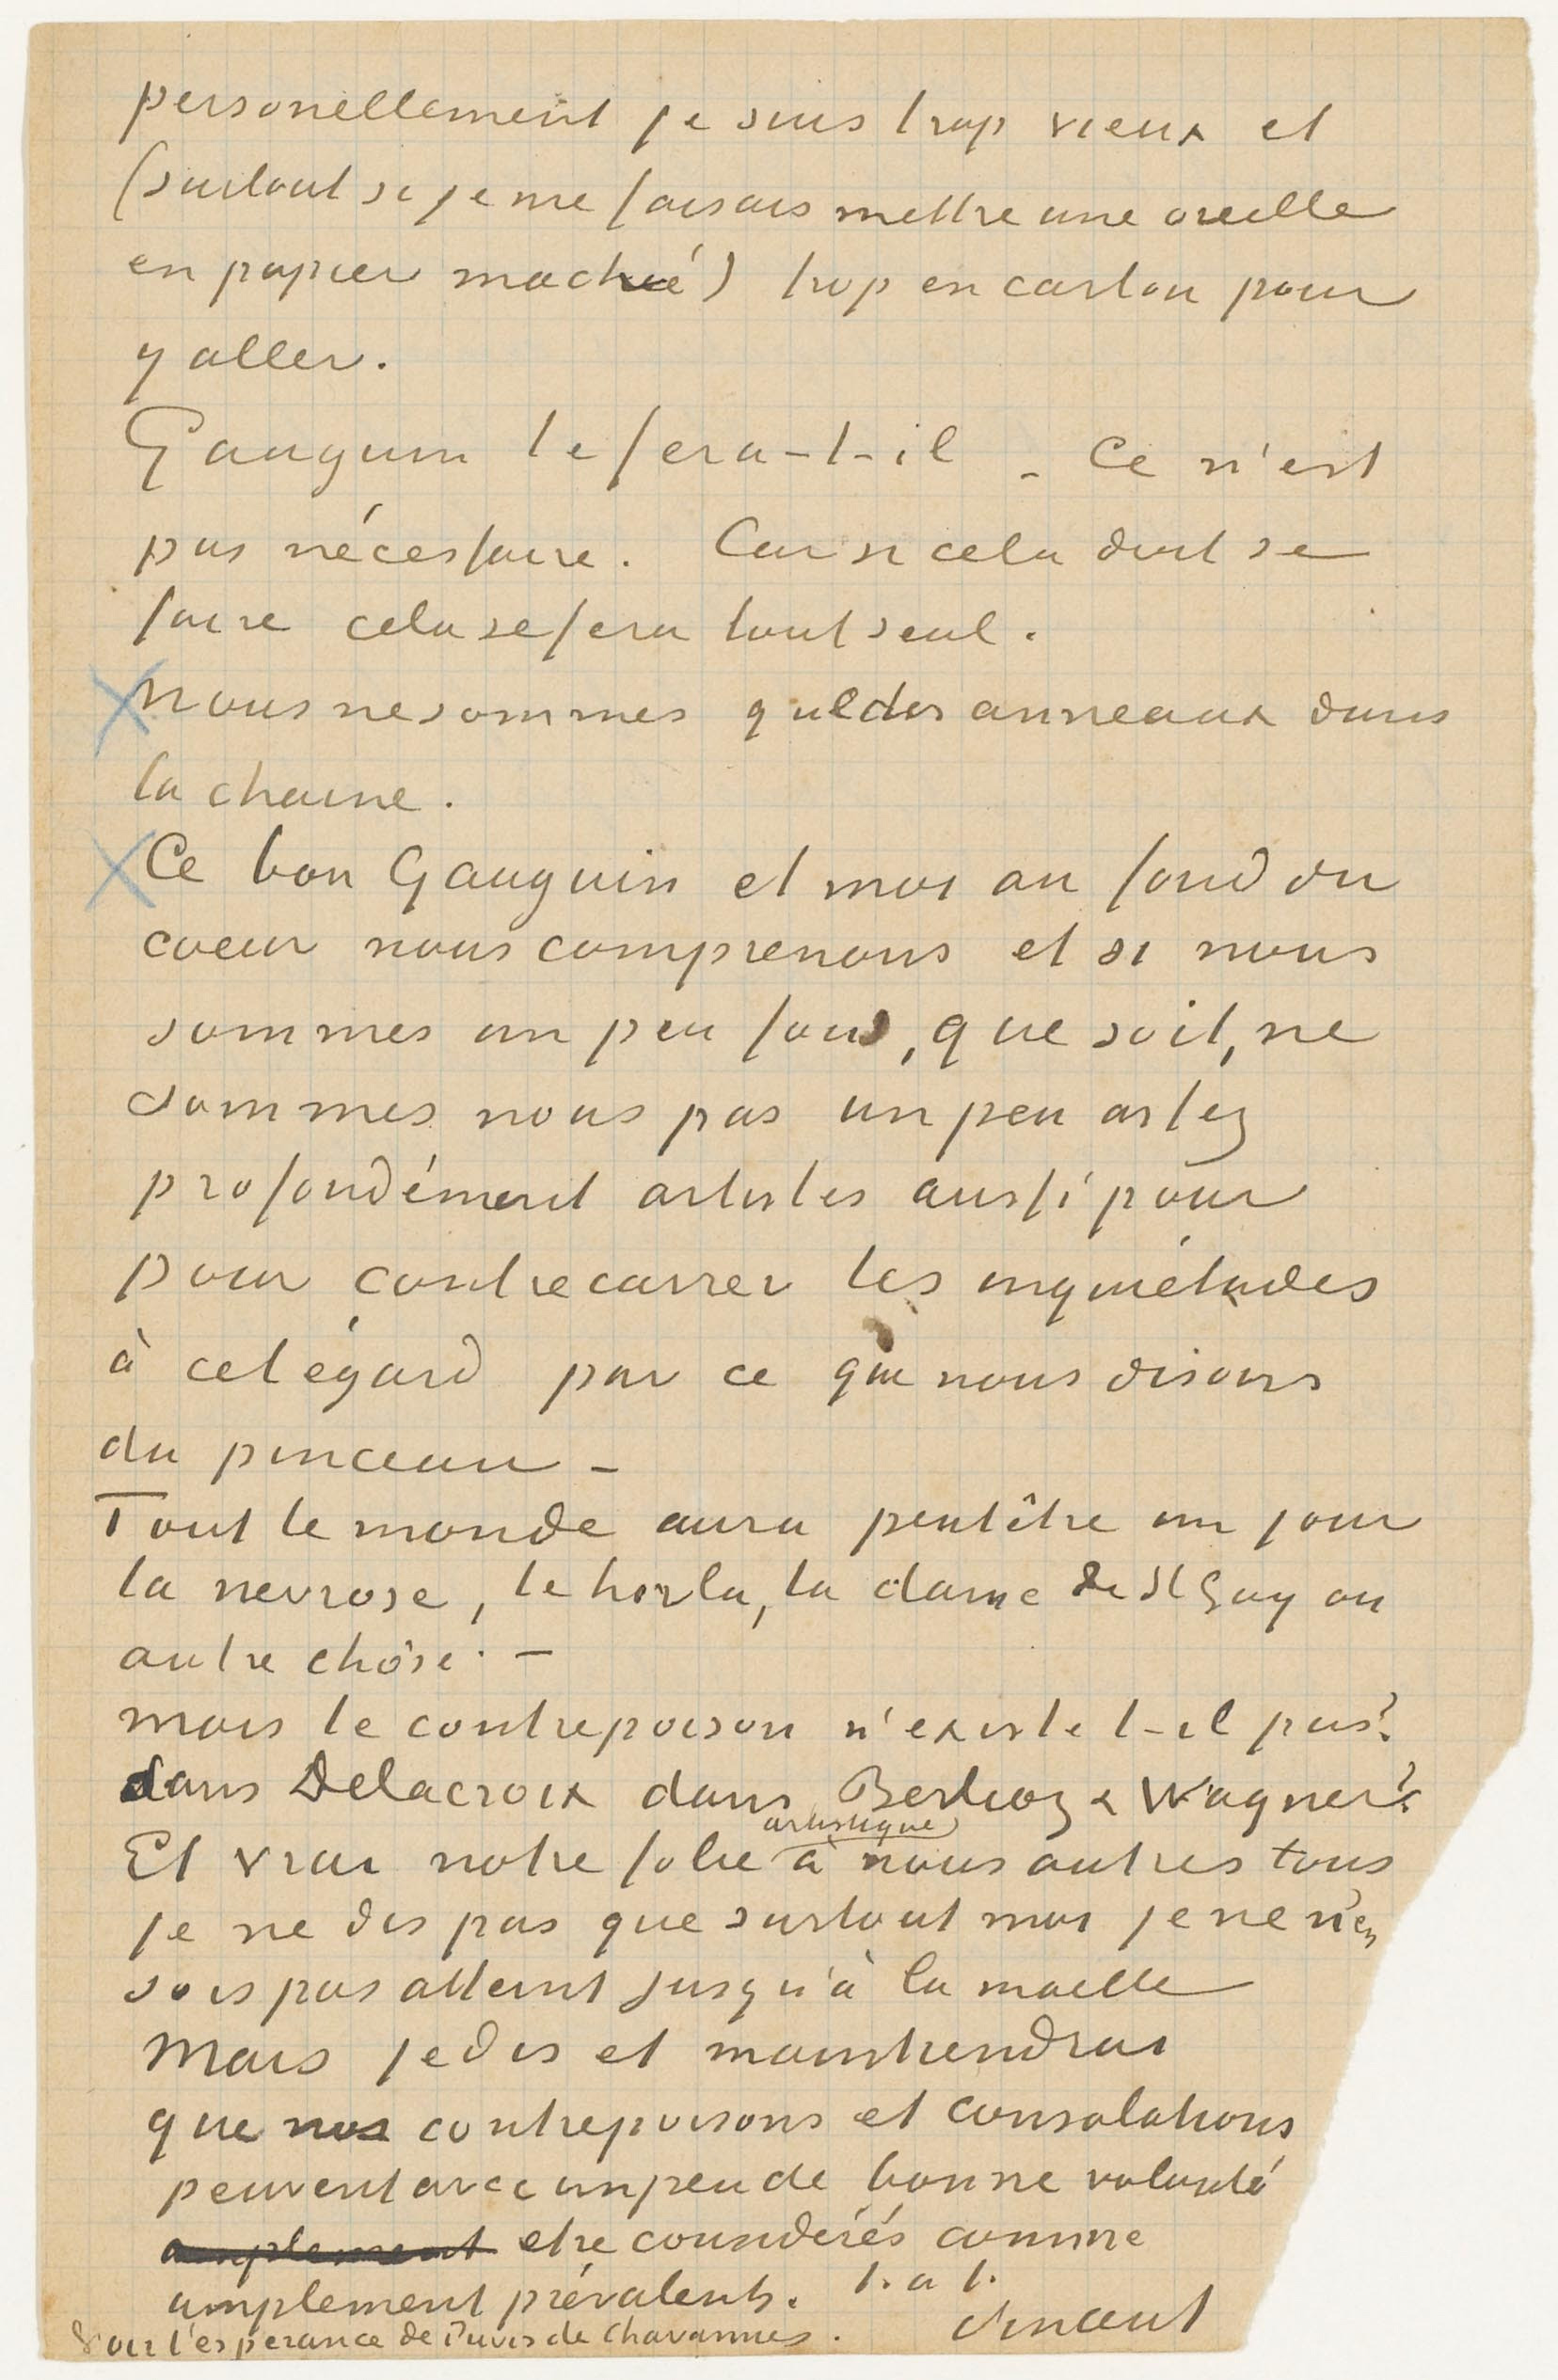 personellement je suis trop vieux et
(surtout si je me faisais mettre une oreille
en papier maché) trop en carton pour
y aller.
Gauguin le fera-t-il - Ce n'est
pas nécessaire. Car si cela doit se
faire cela se fera tout seul.
Nous ne sommes que des anneaux dans
la chaine.
Ce bon Gauguin et moi au fond du
coeur nous comprenons et si nous
sommes un peu fous, que soit, ne
sommes nous pas un peu assez
profondément artistes aussi pour
pour contrecarrer les inquiétudes
à cet égard par ce que nous disons
du pinceau -
Tout le monde aura peutêtre un jour
la nevrose, le horla, la danse de St Guy ou
autre chôse. -
mais le contrepoison n'existe t-il pas?
dans Delacroix dans Berlioz & Wagner?
artistique
Et vrai notre folie à nous autres tous
je ne dis pas que surtout moi je ne n'en
sois pas atteint jusqu'à la moelle
Mais je dis et maintiendrai
que nos contrepoisons et consolations
peuvent avec un peu de bonne volonté
amplement etre considérés comme
amplement prévalents. t. à t.
Vincent
Voir l'esperance de Puvis de Chavannes.